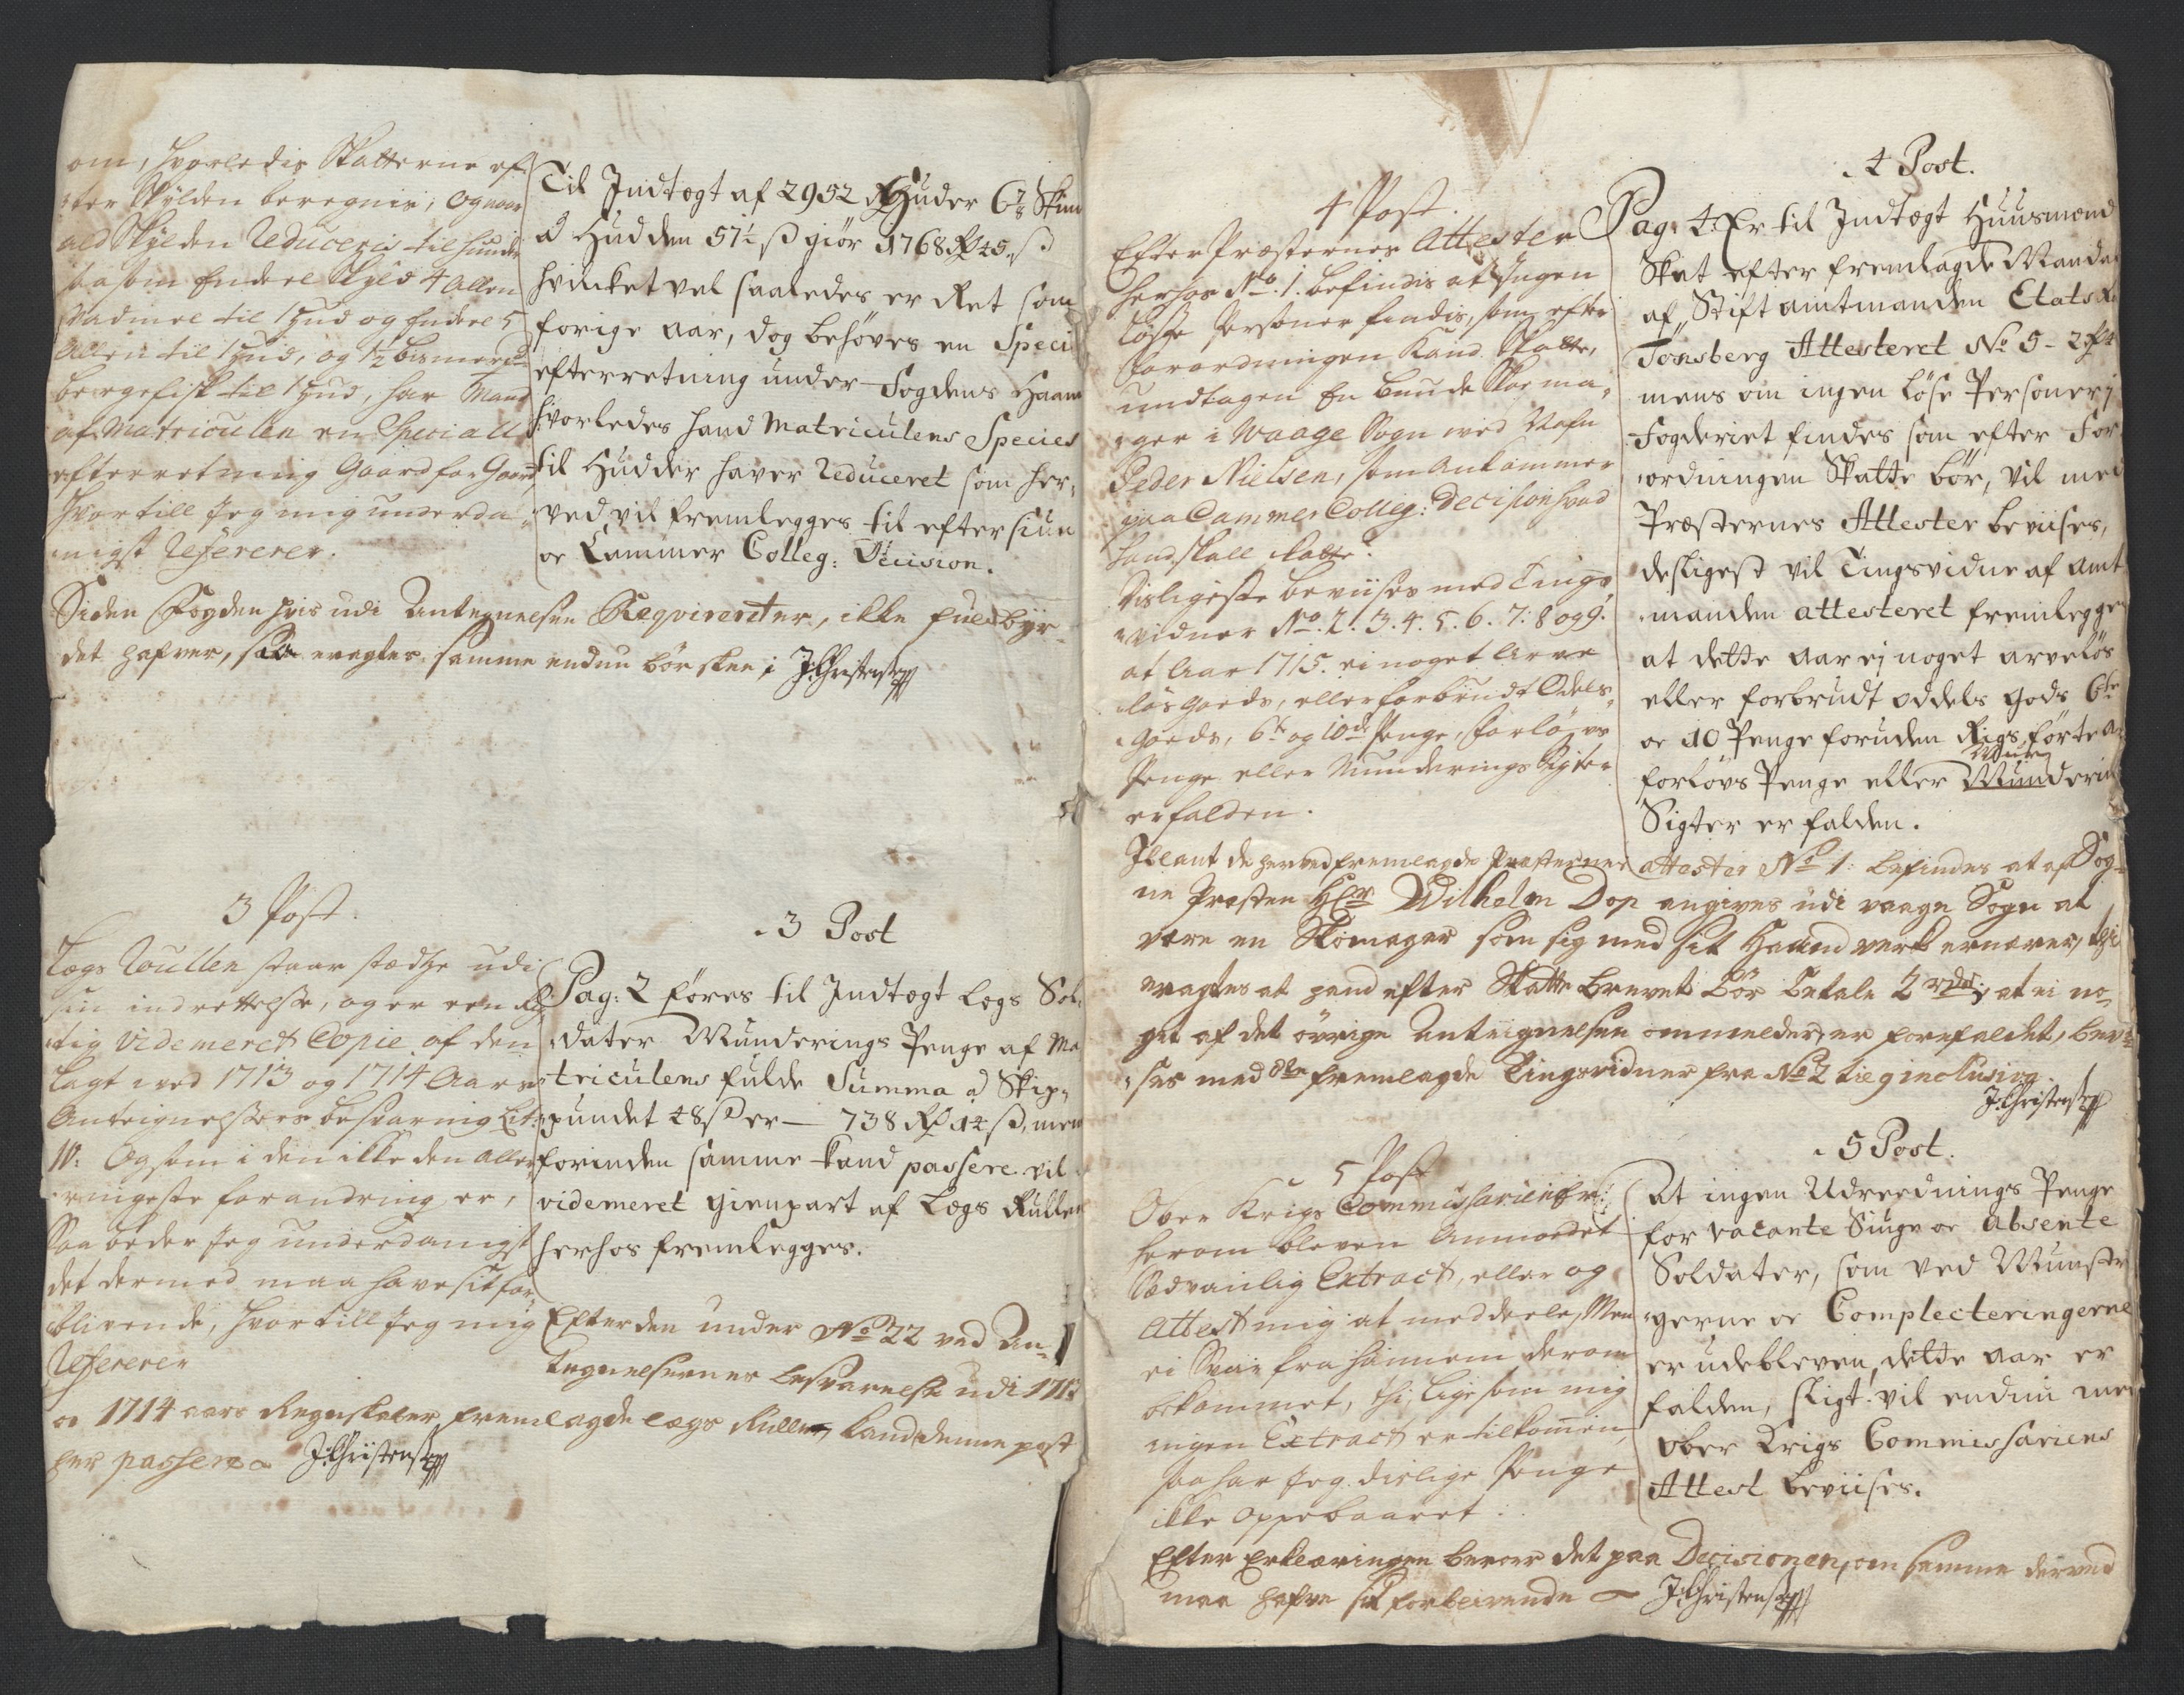 om, hvorledis Skatterne ef-
ter Skylden beregnis, og naar
ald Skylden Reduceris til huuder
saasom Endeel Skyld 4 Allen
Vadmel til 1 Hud og Endeel 5
Allen til 1 Hud, og 1/2 bismerpd
bergefisk til 1 Hud, har Mand
af Matriculen en Speciall
efterretning Gaard for Gaard,
Hvortill Jeg mig underda-
nigst Refererer.
Til Indtegt af 2952 Huder 6 7/8 Skind
a Hudden 57½ ß giör 1768 Rd 45 ß
hvilcket vel saaledes er Ret som
forige aar, dog behöves en Speci
efterretning under Fogdens Haand
hvorledes hand Matriculens Species
til Hudder haver Reduceret som her-
ved vil fremlegges til eftersiun
oc Cammer Colleg: Decision.
Siden Fogden hvis udi Antegnelsen Reqvireriter, ikke fuldbyr-
det hafver, saa eragtes samme endnu bör skee; J:Christensen
3 Post.
Legs Roullen staar stedtze udi
sin indrettelse, og er een Rig-
tig Videmeret Copie af den
lagt ved 1713 og 1714 Aars
Anteignelsers besvaring Lit:
N: Og som i den ikke den aller
ringeste forandring er,
Saa beder Jeg underdanigst
det dermed maa have sit for-
blivende, hvortill Jeg mig
Refererer
3 Post
Pag: 2 föres til Indtegt Legs Sol-
dater Munderings Penge af Ma-
triculens fulde Summa a Skip-
pundet 48 ß er — 738 Rd 14 ß, men
forinden samme kand passere vil
videmeret gienpart af Legs Rullen
herhos fremlegges.
Efter den under No 22 ved An-
tegnelsernes besvarelse udi 1713
oc 1714 aars Regnskaber fremlagde legs Rulle, kand denne post
her passere J:Christensen
4 Post.
Efter Præsternes Attester
herhos No. 1. befindis at Ingen
Löse Personer findis, som efter
forordningen Kand Skatte,
undtagen En buude Skoema-
ger i Waage Sogn med Nafn
Peder Nielsen, som Ankommer
paa Cammer Colleg: Decision hvad
hand skall skatte.
Disligeste beviises med Tings
vidner No. 2. 3. 4. 5. 6. 7. 8 og 9.
at Aar 1715. ei noget Arve
löst goeds, eller forbrudt Odels
goeds, 6te og 10de penge, forlovs
Penge eller Munderings Sigter
er falden.
4 Post.
Pag: 4 Er til Indtegt Huusmænd
Skat efter fremlagde Mandtal
af Stiftamtmanden Etats R
Tonsberg Attesteret No 5 - 2 Rd
mens om ingen löse Personer i
Fogderiet findes som efter For-
ordningen Skatte bör, vil med
Præsternes Attester beviises,
desligest vil Tingsvidne af amt-
manden attesteret fremlegges
at dette aar ej noget arvelös
eller forbrudt oddels gods 6te
oc 10 Penge foruden Rigs förte
forlovs Penge eller Munderings
Sigter er falden.
Iblant de herved fremlagde Præsternes attester No 1: befindes at af Sog-
ne Præsten Hr Wilhelm Dop angives udi vaage Sogn at
være en Skomager som sig med sit Haandverk ernærer, thi
eragtes at hand efter Skatte brevet bör betale 2 rdr; at ei no-
get af det övrige Anteignelsen ommelder, er forefaldet, bevi-
ses med de fremlagde tingsvidner fra No 2 til 9 inclusive.
J:Christensen
5 Post
Ober Krigs Commissarien er
herom bleven Anmodet
Sædvanlig Extract, eller og
Attest mig at meddeele, Men
ei Svar fra hannem derom
bekommet, thi, ligesom mig
ingen Extract er tilkommen,
saa har Jeg dislige Penge
ikke oppebaaret.
5 Post.
At ingen Udreednings Penge
for vacante Siuge oc Absente
Soldater, som ved Munstrin-
gerne oc Complecteringerne
er udebleven, dette aar er
falden, sligt vil endnu med
Ober Krigs Commissariens
Attest beviises.
Efter Erklæringen beroer det paa Decisionen, om samme derved
maa hafve sit forblivende J:Christensen